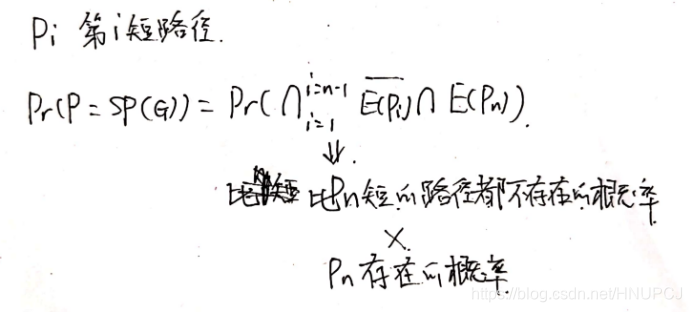 Pi 第i短路径.
Pr(P = SP(G)) = Pr(∩_{i=1}^{i=n-1} \overline{E(Pi)} ∩ E(Pn)).
⇓.
比Pn短的路径都不存在的概率
×
Pn存在的概率
https://blog.csdn.net/HNUPCJ